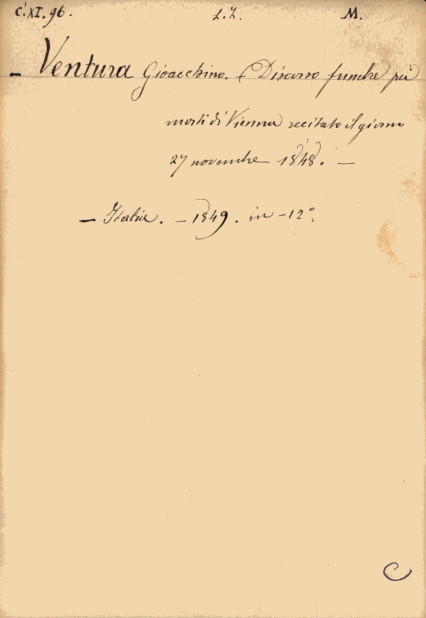 C.XI.96. L.L. M.
– Ventura Gioacchino. Discorso funebre pei
morti di Vienna recitato il giorno
27 novembre 1848. –
– Italia. – 1849. in – 12º.
C